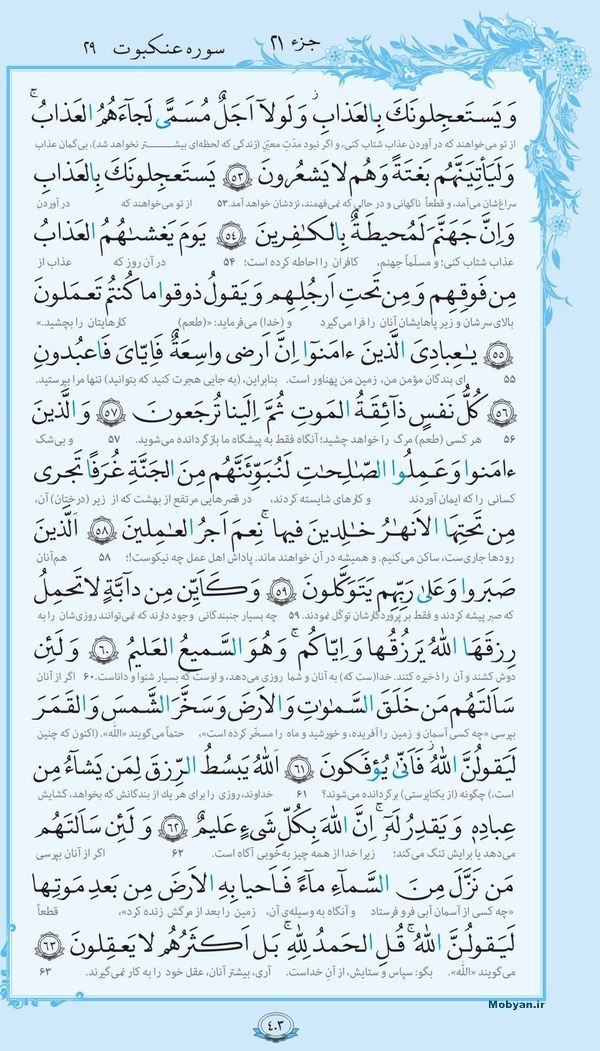 جزء ۲۱ سوره عنکبوت ۲۹
وَ یَستَعجِلونَكَ بِالعَذابِ ۚ وَ لَولاۤ اَجَلٌ مُسَمًّی لَجاۤءَهُمُ العَذابُ ۚ
از تو می‌خواهند که در آوردن عذاب شتاب کنی، و اگر نبود مدّتِ معیّنِ (زندگی که لحظه‌ای بیشتر نخواهد شد)، بی‌گمان عذاب
وَ لَیَأتِیَنَّهُم بَغتَةً وَ هُم لا یَشعُرونَ ۵۳ یَستَعجِلونَكَ بِالعَذابِ
سراغ‌شان می‌آمد، و قطعاً ناگهانی و در حالی که نمی‌فهمند، نزدشان خواهد آمد. ۵۳ از تو می‌خواهند که در آوردن
وَ اِنَّ جَهَنَّمَ لَمُحیطَةٌ بِالکٰفِرینَ ۵۴ یَومَ یَغشٰىهُمُ العَذابُ
عذاب شتاب کنی؛ و مسلّماً جهنم، کافران را احاطه کرده است؛ ۵۴ در آن روز که عذاب از
مِن فَوقِهِم وَ مِن تَحتِ اَرجُلِهِم وَ یَقولُ ذوقوا ما کُنتُم تَعمَلونَ
بالای سرشان و زیر پاهایشان آنان را فرا می‌گیرد و (خدا) می‌فرماید: «(طعم) کارهایتان را بچشید.»
۵۵ یٰعِبادِیَ الَّذینَ ءامَنوا اِنَّ اَرضی واسِعَةٌ فَاِیّایَ فَاعبُدونِ
۵۵ ای بندگان مؤمن من، زمین من پهناور است. بنابراین، (به جایی هجرت کنید که بتوانید) تنها مرا بپرستید.
۵۶ کُلُّ نَفسٍ ذاۤئِقَةُ المَوتِ ثُمَّ اِلَینا تُرجَعونَ ۵۷ وَ الَّذینَ
۵۶ هر کسی (طعم) مرگ را خواهد چشید؛ آنگاه فقط به پیشگاه ما بازگردانده می‌شوید. ۵۷ و بی‌شک
ءامَنوا وَ عَمِلُوا الصّٰلِحٰتِ لَنُبَوِّئَنَّهُم مِنَ الجَنَّةِ غُرَفًا تَجری
کسانی را که ایمان آوردند و کارهای شایسته کردند، در قصرهایی مرتفع از بهشت که از زیر (درختان) آن،
مِن تَحتِهَا الاَنهٰرُ خٰلِدینَ فیها ۚ نِعمَ اَجرُ العٰمِلینَ ۵۸ اَلَّذینَ
رودها جاری‌ست، ساکن می‌کنیم. و همیشه در آن خواهند ماند. پاداش اهل عمل چه نیکوست!؛ ۵۸ هم‌آنان
صَبَروا وَ عَلیٰ رَبِّهِم یَتَوَکَّلونَ ۵۹ وَ کَاَیِّن مِن داۤبَّةٍ لا تَحمِلُ
که صبر پیشه کردند و فقط بر پروردگارشان توکّل نمودند. ۵۹ چه بسیار جنبندگانی وجود دارند که نمی‌توانند روزی‌شان را به
رِزقَهَا اللهُ یَرزُقُها وَ اِیّاکُم ۚ وَ هُوَ السَّمیعُ العَلیمُ ۶۰ وَ لَئِن
دوش کشند و آن را ذخیره کنند. خدا(ست که) به آنان و شما روزی می‌دهد، و اوست که بسیار شنوا و داناست. ۶۰ اگر از آنان
سَاَلتَهُم مَن خَلَقَ السَّمٰوٰتِ وَ الاَرضَ وَ سَخَّرَ الشَّمسَ وَ القَمَرَ
بپرسی «چه کسی آسمان و زمین را آفریده، و خورشید و ماه را مسخّر کرده است»، حتماً می‌گویند «الله». (اکنون که چنین
لَیَقولُنَّ اللهُ ۖ فَاَنّیٰ یُؤفَکونَ ۶۱ اَللهُ یَبسُطُ الرِّزقَ لِمَن یَشاۤءُ مِن
است،) چگونه (از یکتاپرستی) برگردانده می‌شوند؟ ۶۱ خداوند، روزی را برای هر یك از بندگانش که بخواهد، گشایش
عِبادِهٖ وَ یَقدِرُ لَهٗۤ ۚ اِنَّ اللهَ بِکُلِّ شَیءٍ عَلیمٌ ۶۲ وَ لَئِن سَاَلتَهُم
می‌دهد یا برایش تنگ می‌کند؛ زیرا خدا از همه چیز به‌خوبی آگاه است. ۶۲ اگر از آنان بپرسی
مَن نَزَّلَ مِنَ السَّماۤءِ ماۤءً فَاَحیا بِهِ الاَرضَ مِن بَعدِ مَوتِها
«چه کسی از آسمان آبی فرو فرستاد و آنگاه به وسیله‌ی آن، زمین را بعد از مرگش زنده کرد»، قطعاً
لَیَقولُنَّ اللهُ ۚ قُلِ الحَمدُ لِلّٰهِ ۚ بَل اَکثَرُهُم لا یَعقِلونَ ۶۳
می‌گویند «الله». بگو: سپاس و ستایش، از آنِ خداست. آری، بیشتر آنان، عقل خود را به کار نمی‌گیرند. ۶۳
Mobyan.ir
۴۰۳